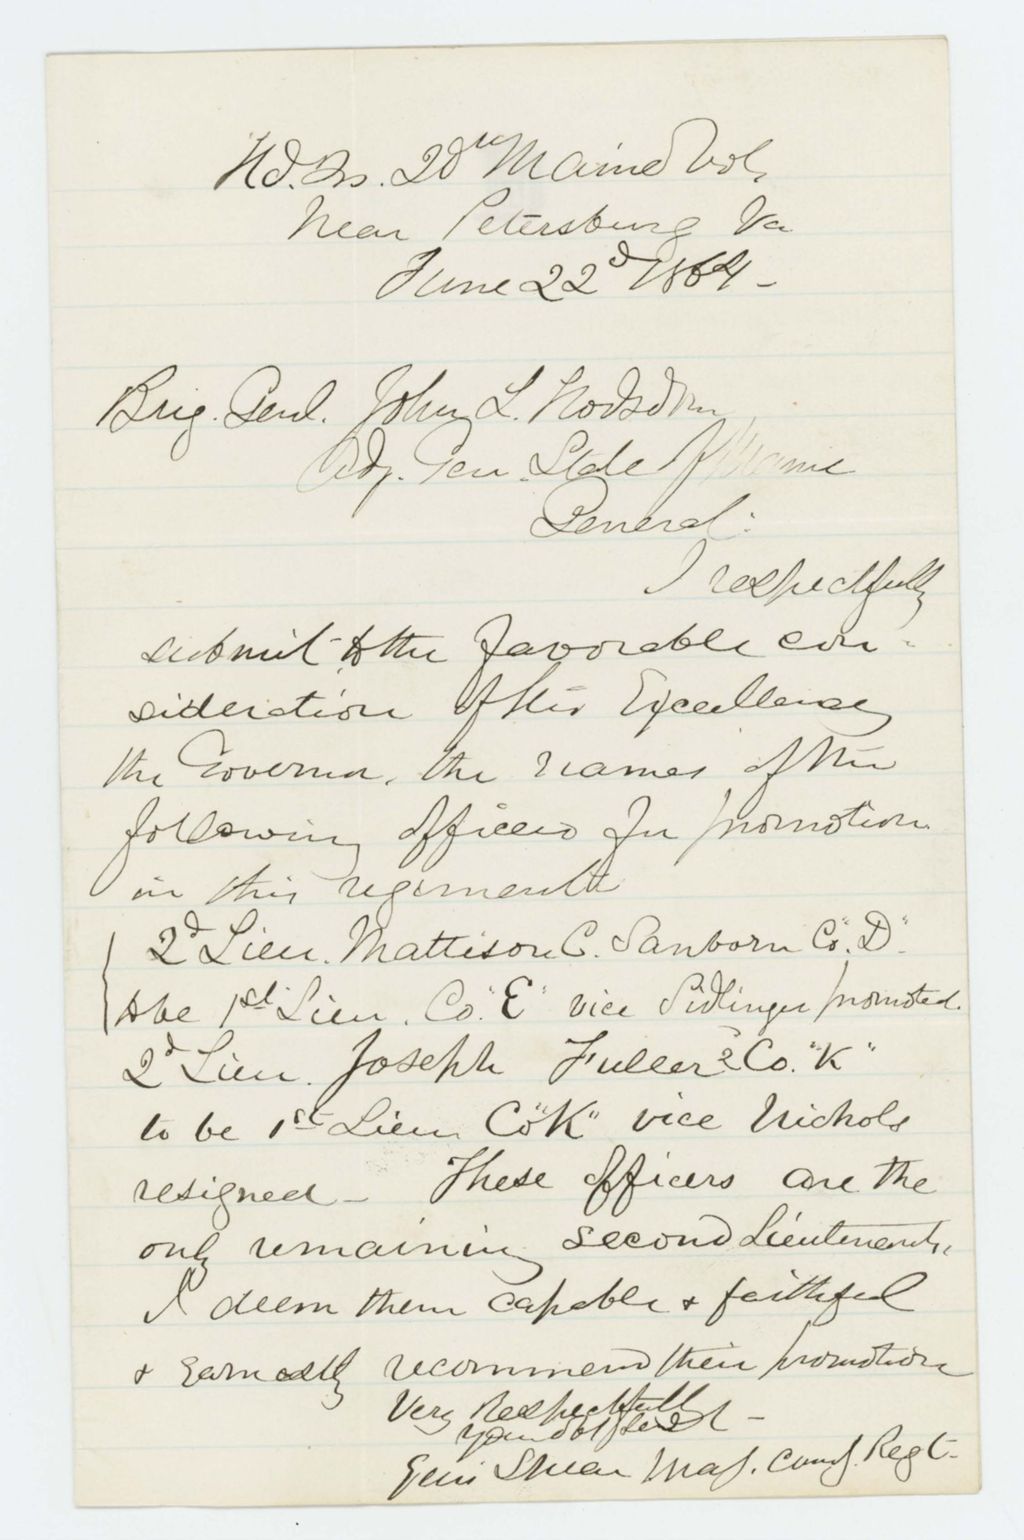 Hd. Qrs. 20th Maine Vol.
Near Petersburg Va
June 22d 1864 -
Brig. Genl. John L. Hodsdon
Adj. Gen. State of Maine
General:
I respectfully
submit to the favorable con-
sideration of His Excellency
the Governor, the names of the
following officers for promotion
in this regiment
2d Lieu. Mattison C. Sanborn Co. "D".
to be 1st Lieu. Co. "E" vice Sidlinger promoted.
2d Lieu. Joseph Fuller 2d Co. "K"
to be 1st Lieu Co "K" vice Nichols
resigned - These officers are the
only remaining second Lieutenants.
I deem them capable & faithful
& earnestly recommend their promotion
Very Respectfully
Your Obt Servt -
Ellis Spear Maj. Comd'g. Regt.